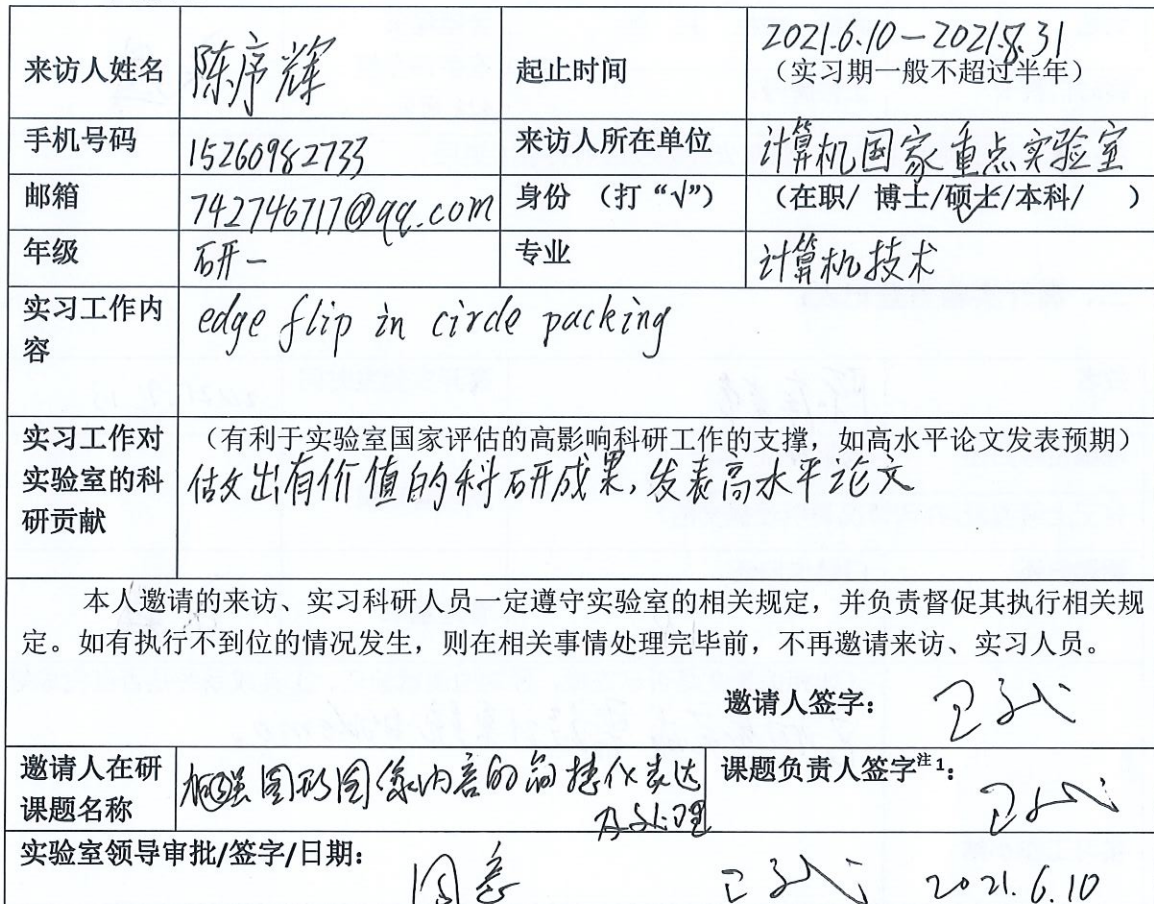 来访人姓名 陈序辉 起止时间 2021.6.10－2021.8.31
（实习期一般不超过半年）
手机号码 15260982733 来访人所在单位 计算机国家重点实验室
邮箱 742746717@qq.com 身份 （打“√”） （在职/ 博士/硕士/本科/ ）
年级 研一 专业 计算机技术
实习工作内容 edge flip in circle packing
实习工作对实验室的科研贡献 （有利于实验室国家评估的高影响科研工作的支撑，如高水平论文发表预期）
估文出有价值的科研成果，发表高水平论文
本人邀请的来访、实习科研人员一定遵守实验室的相关规定，并负责督促其执行相关规
定。如有执行不到位的情况发生，则在相关事情处理完毕前，不再邀请来访、实习人员。
邀请人签字：
邀请人在研课题名称 图形图像内容的简捷化表达 课题负责人签字注1：
及处理
实验室领导审批/签字/日期： 2021.6.10